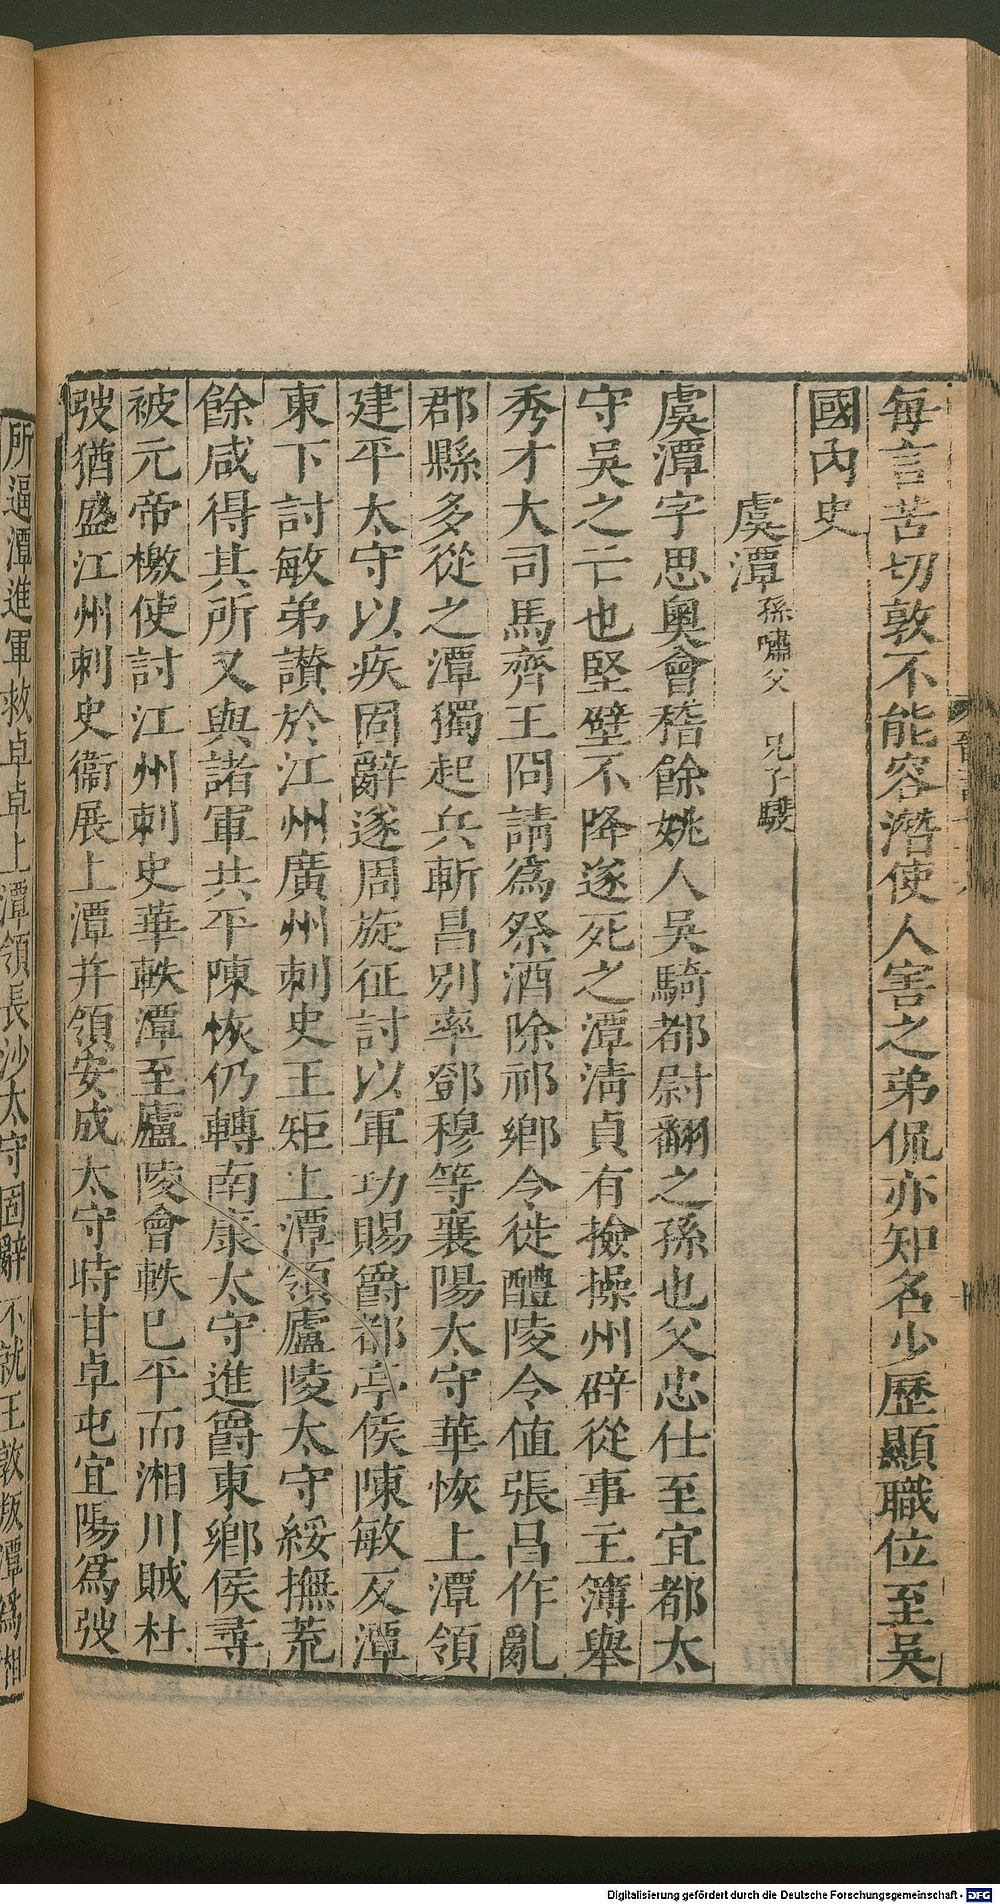 每言苦切敦不能容潛使人害之弟侃亦知名少歷顯職位至吳
國內史
虞潭孫嘯父 兄子𩦎
虞潭字思奧會稽餘姚人吳騎都尉翻之孫也父忠仕至宜都太
守吳之亡也堅壁不降遂死之潭清貞有撿操州辟從事主簿舉
秀才大司馬齊王冏請為祭酒除祁鄉令徙醴陵令值張昌作亂
郡縣多從之潭獨起兵斬昌別率鄧穆等襄陽太守華恢上潭領
建平太守以疾固辭遂周旋征討以軍功賜爵都亭侯陳敏反潭
東下討敏弟讃於江州廣州刺史王矩上潭領廬陵太守綏撫荒
餘咸得其所又與諸軍共平陳恢仍轉南康太守進爵東鄉侯尋
被元帝檄使討江州刺史華軼潭至廬陵會軼已平而湘川賊杜
弢猶盛江州刺史衞展上潭并領安成太守時甘卓屯宜陽為弢
所逼潭進軍救卓卓上潭領長沙太守固辭不就王敦版潭為湘
Digitalisierung gefördert durch die Deutsche Forschungsgemeinschaft - DFG